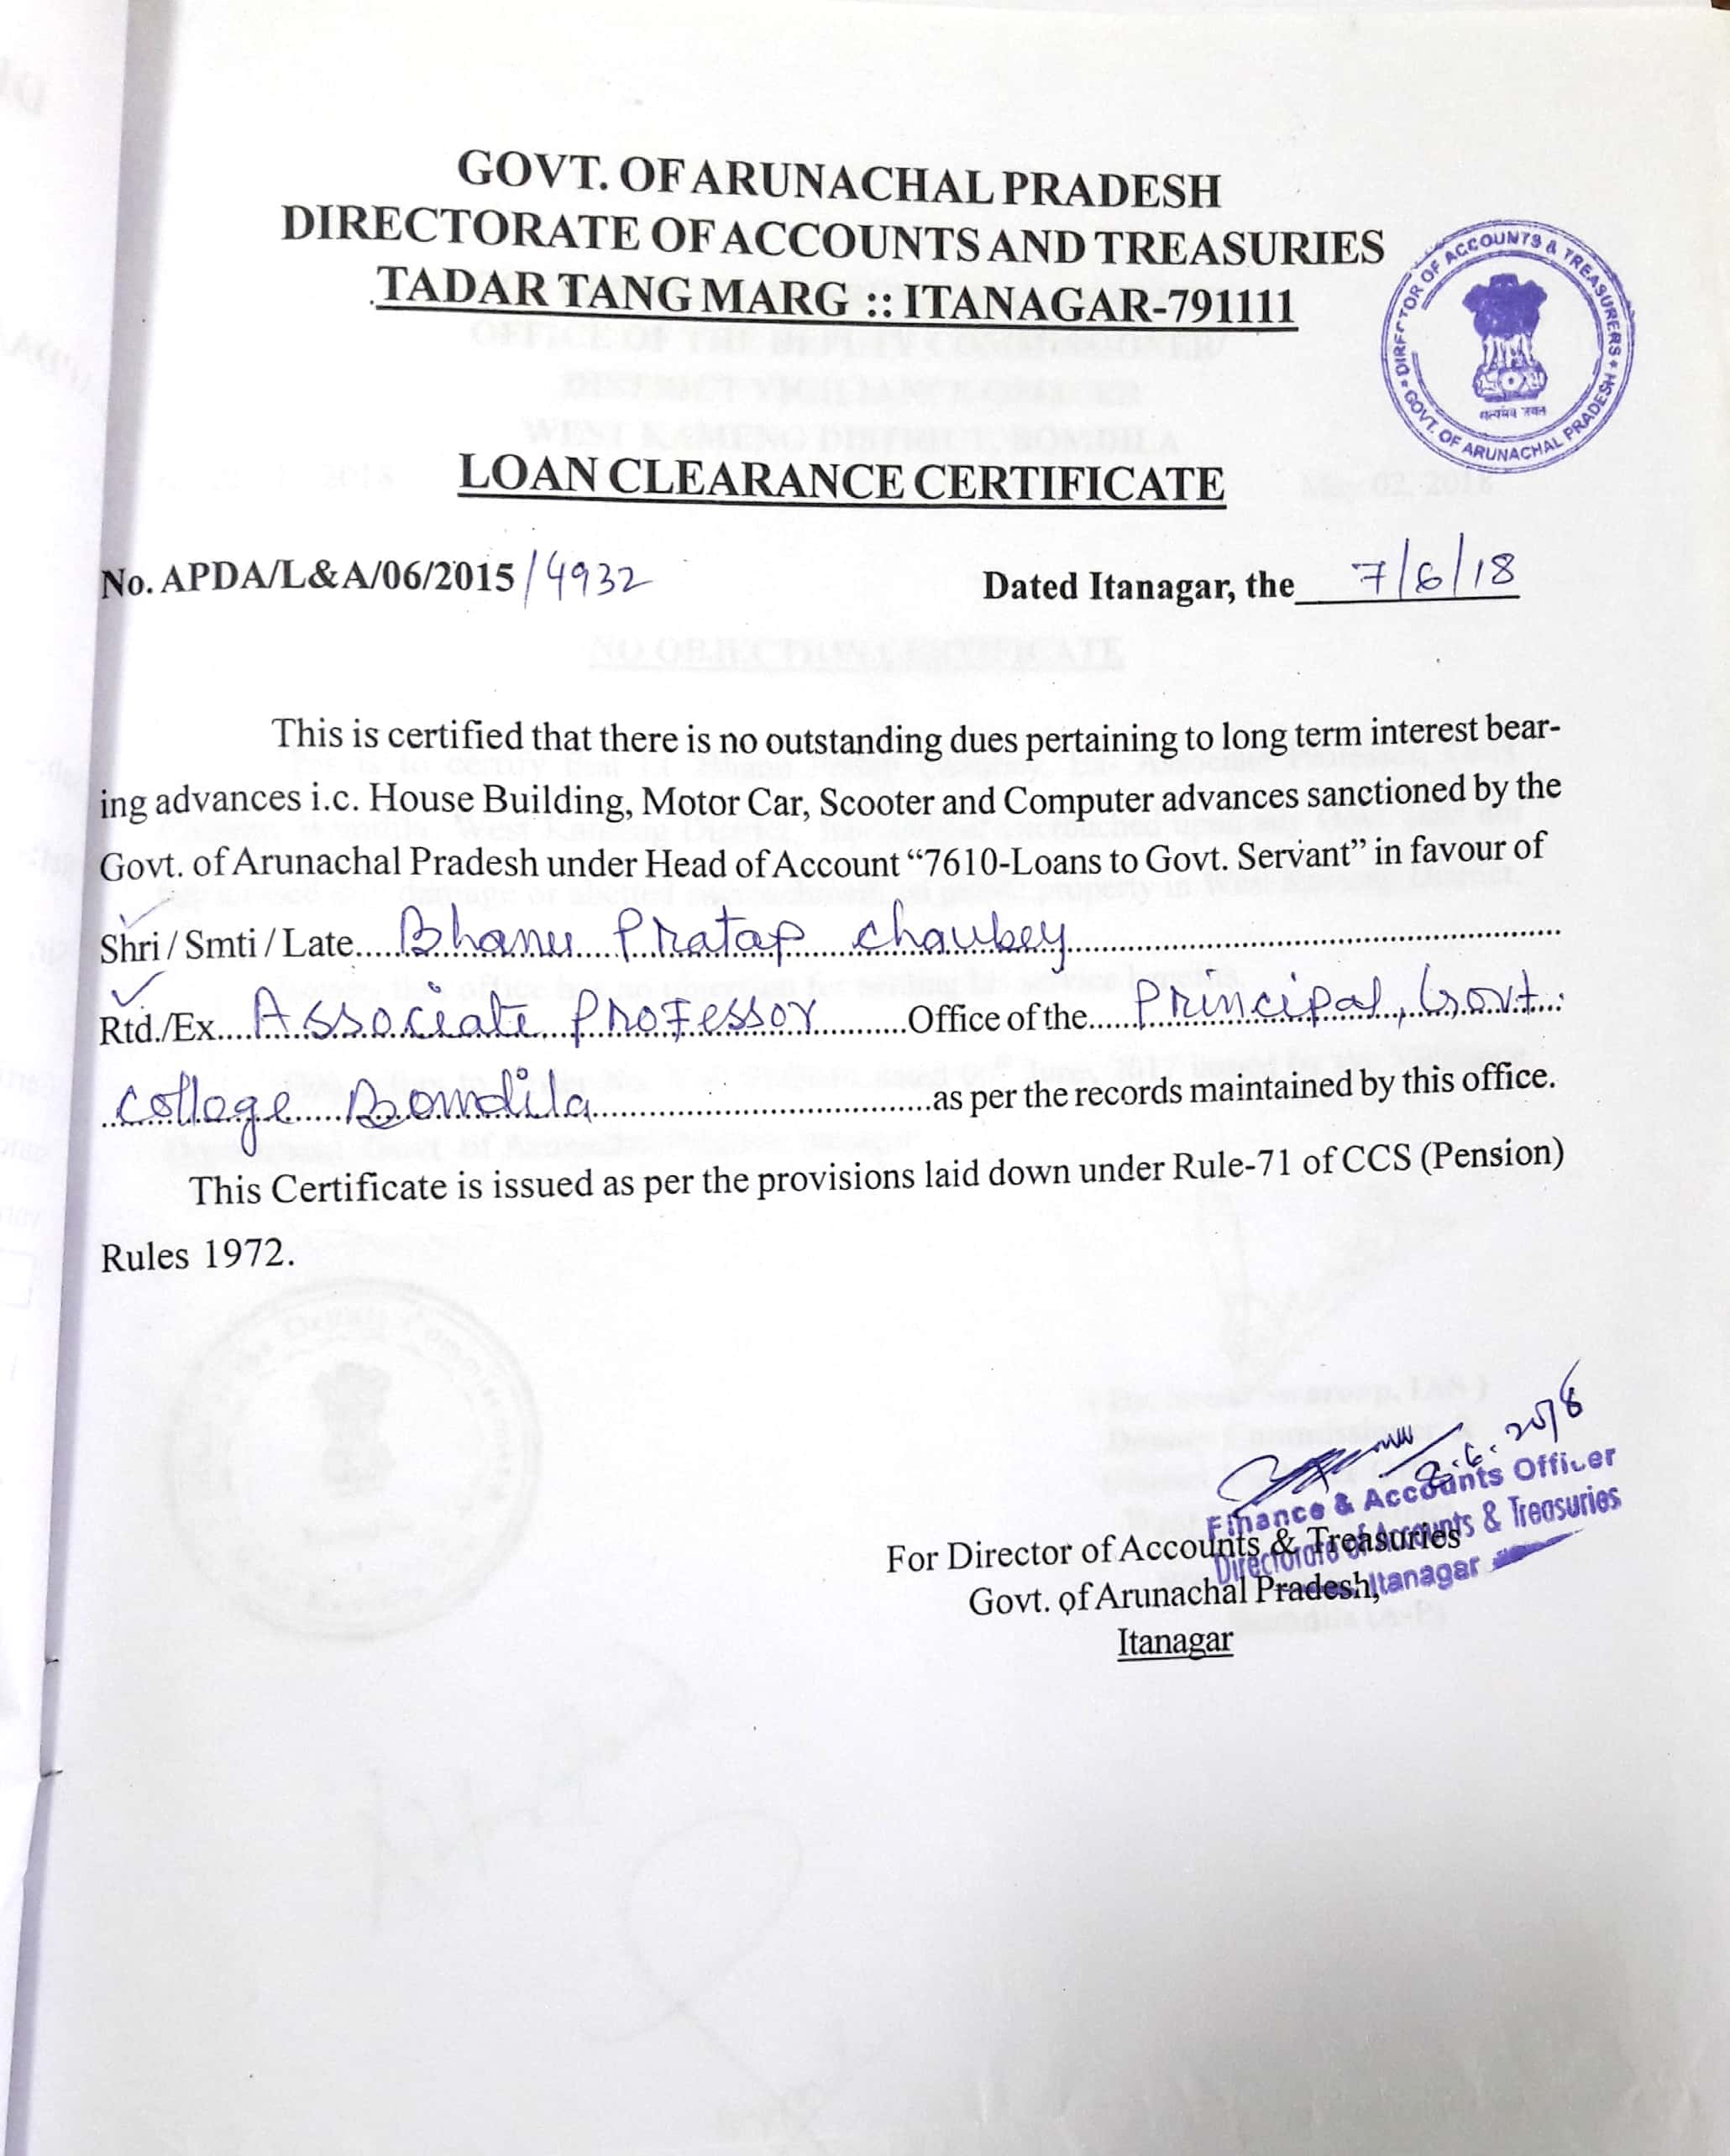 GOVT. OF ARUNACHAL PRADESH
DIRECTORATE OF ACCOUNTS AND TREASURIES
TADAR TANG MARG :: ITANAGAR-791111
DIRECTOR OF ACCOUNTS & TREASURERS
GOVT. OF ARUNACHAL PRADESH
LOAN CLEARANCE CERTIFICATE
No. APDA/L&A/06/2015/4932 Dated Itanagar, the 7/6/18
This is certified that there is no outstanding dues pertaining to long term interest bear-
ing advances i.c. House Building, Motor Car, Scooter and Computer advances sanctioned by the
Govt. of Arunachal Pradesh under Head of Account “7610-Loans to Govt. Servant” in favour of
Shri / Smti / Late....Bhanu Pratap Chaubey....
Rtd./Ex....Associate Professor....Office of the....Principal, Govt.
College Bomdila....as per the records maintained by this office.
This Certificate is issued as per the provisions laid down under Rule-71 of CCS (Pension)
Rules 1972.
8.6.2018
Finance & Accounts Officer
Directorate of Accounts & Treasuries
Itanagar
For Director of Accounts & Treasuries
Govt. of Arunachal Pradesh,
Itanagar